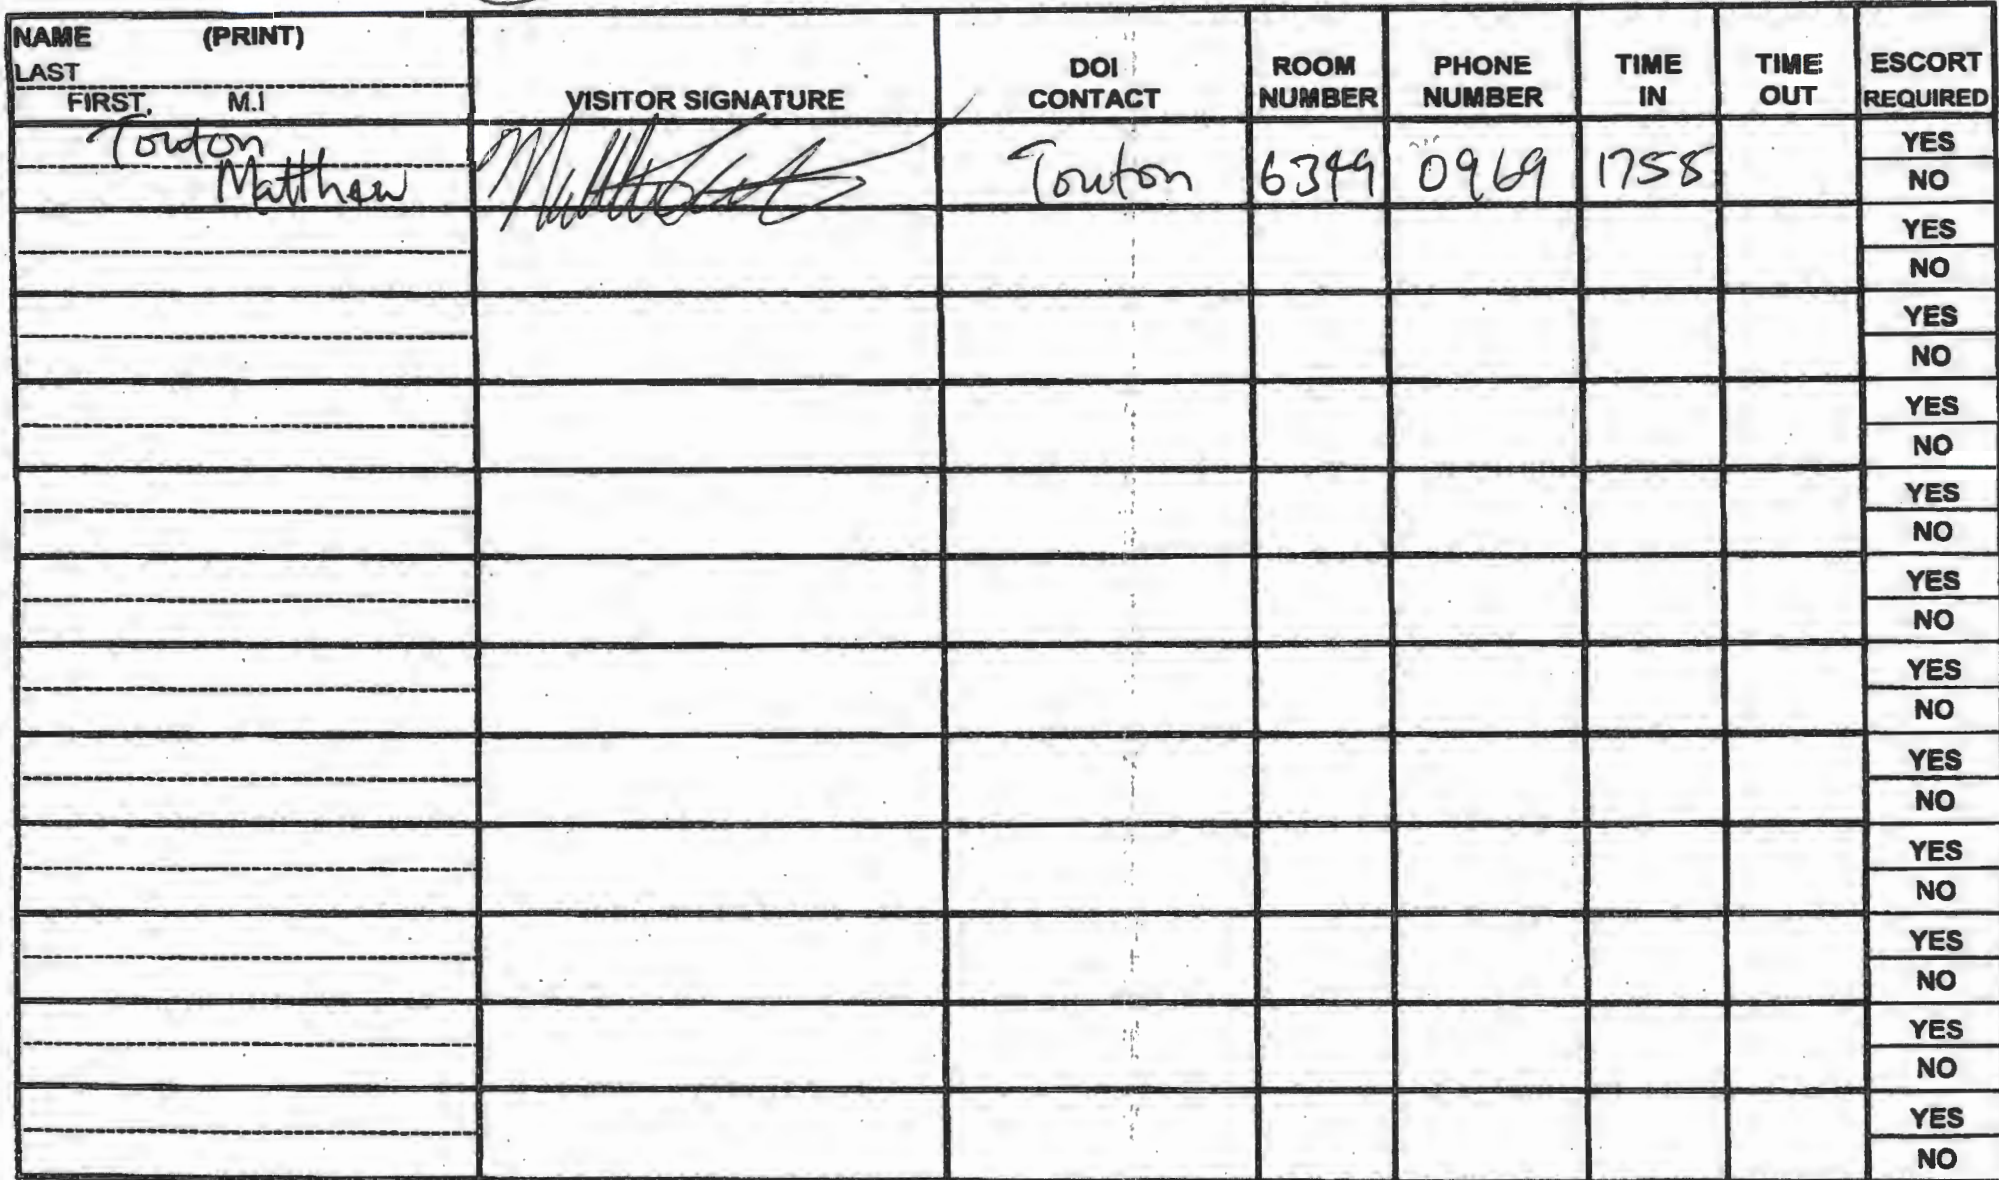 NAME (PRINT)
LAST
FIRST, M.I
VISITOR SIGNATURE
DOI CONTACT
ROOM NUMBER
PHONE NUMBER
TIME IN
TIME OUT
ESCORT REQUIRED
Touton
Matthew
Touton
6349
0969
1758
YES
NO
YES
NO
YES
NO
YES
NO
YES
NO
YES
NO
YES
NO
YES
NO
YES
NO
YES
NO
YES
NO
YES
NO